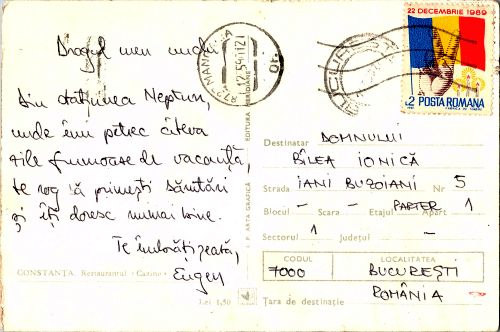 Dragul meu unchi
Din stațiunea Neptun,
unde îmi petrec câteva
zile frumoase de vacanță,
te rog să primești sănătări
și îți doresc numai bine.
Te îmbrățișează,
Eugen
CONSTANȚA. Restaurantul „Cazino”
Lei 1,50
EDITURA MERIDIANE
I. P. ARTA GRAFICĂ
MANGALIA
22 DECEMBRIE 1989
L2 POSTA ROMANA
Destinatar DOMNULUI
BÎLEA IONICĂ
Strada IANI BUZOIANI Nr 5
Blocul – Scara – Etajul PARTER Apart 1
Sectorul 1 Județul –
CODUL LOCALITATEA
7000 BUCUREȘTI
ROMÂNIA
Țara de destinație